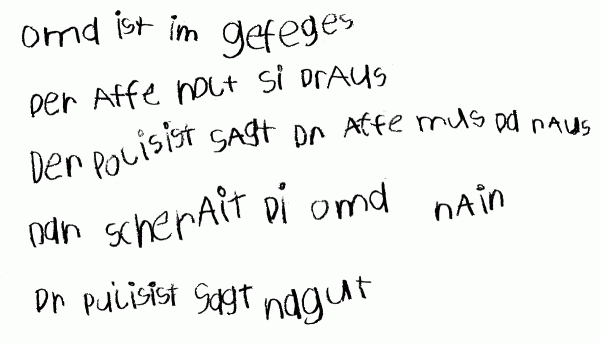 omd ist im gefeges
Der Affe holt si DrAUs
Der polisist SAgt Dr Affe mus Da nAUs
Dan scherAit Di omd nAin
Dr pulisist Sagt nagut